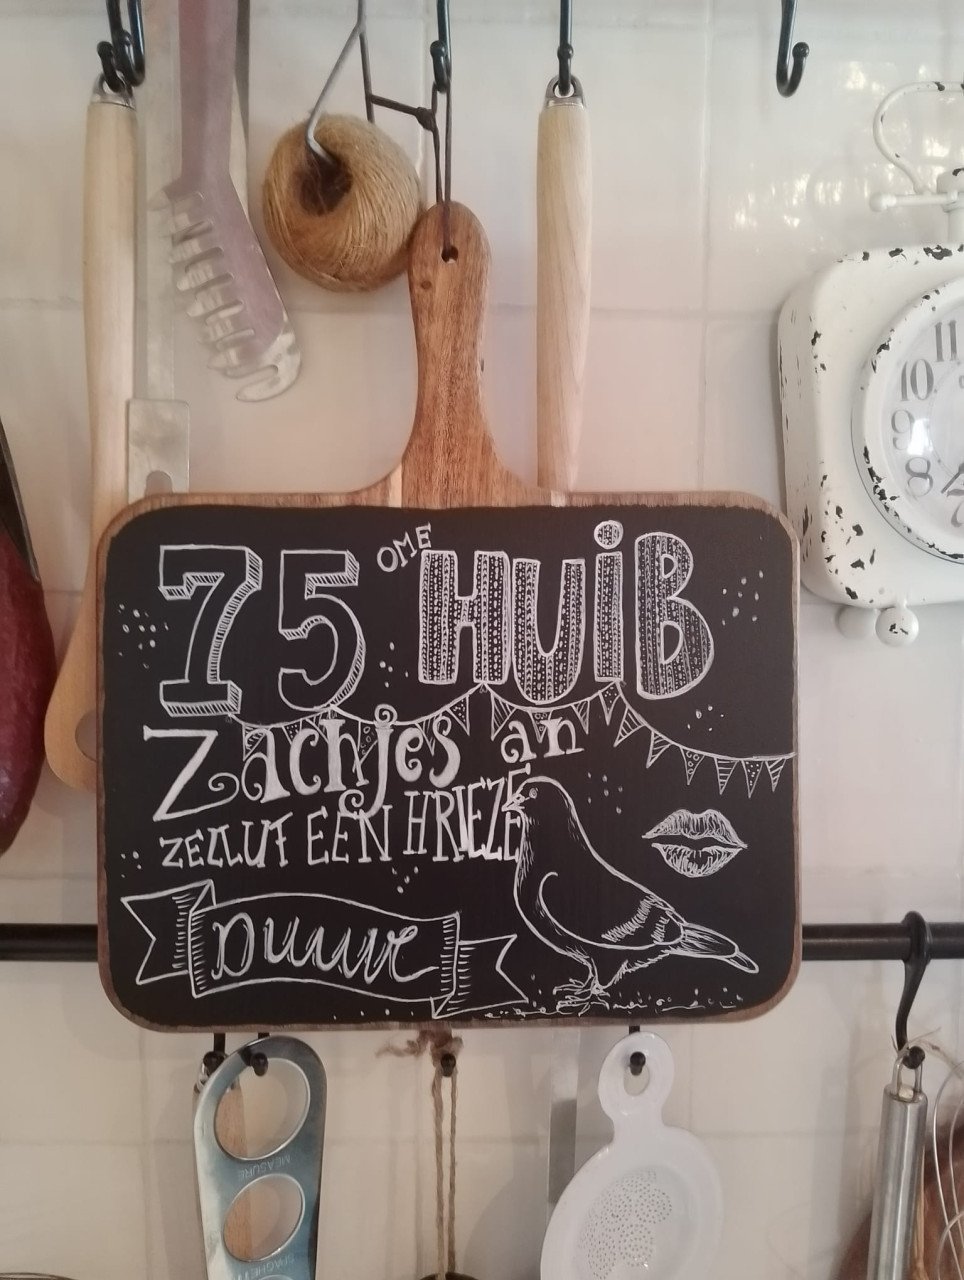 75 OME HUiB
Zachjes an
ZELLUF EEN HRIEZE
Duuve
11
10
9
8
7
MEASURE
SPAGHETTI